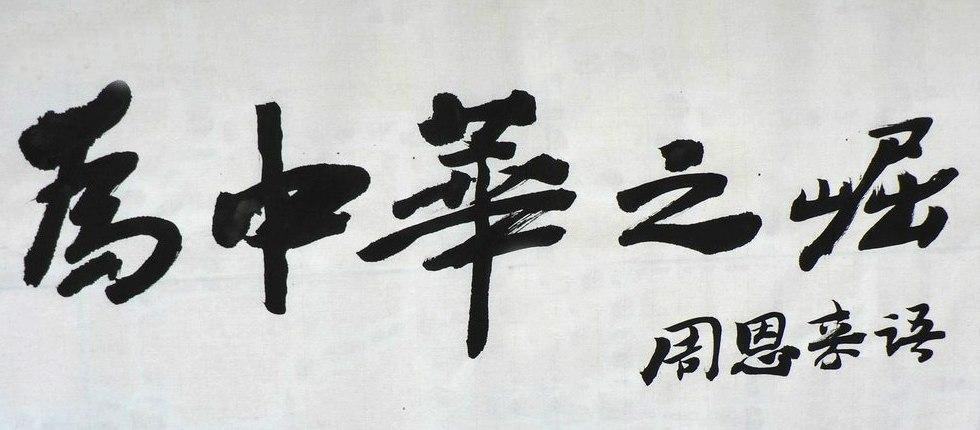 為中華之崛
周恩来语